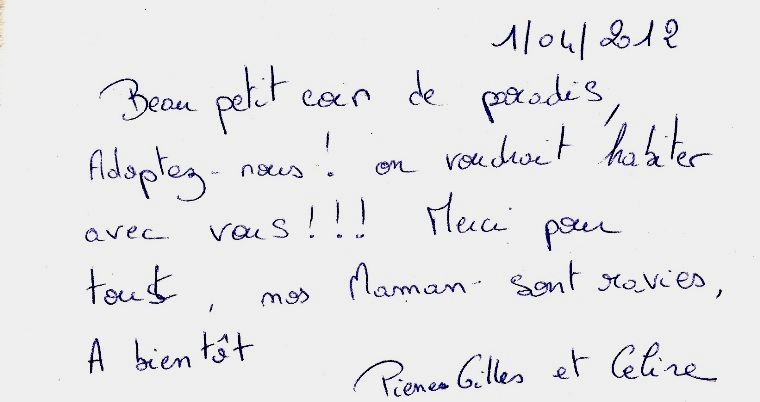 1/04/2012
Beau petit coin de paradis,
Adoptez-nous! on voudrait habiter
avec vous!!! Merci pour
tout, nos Maman sont ravies,
A bientôt
Pierre Gilles et Céline